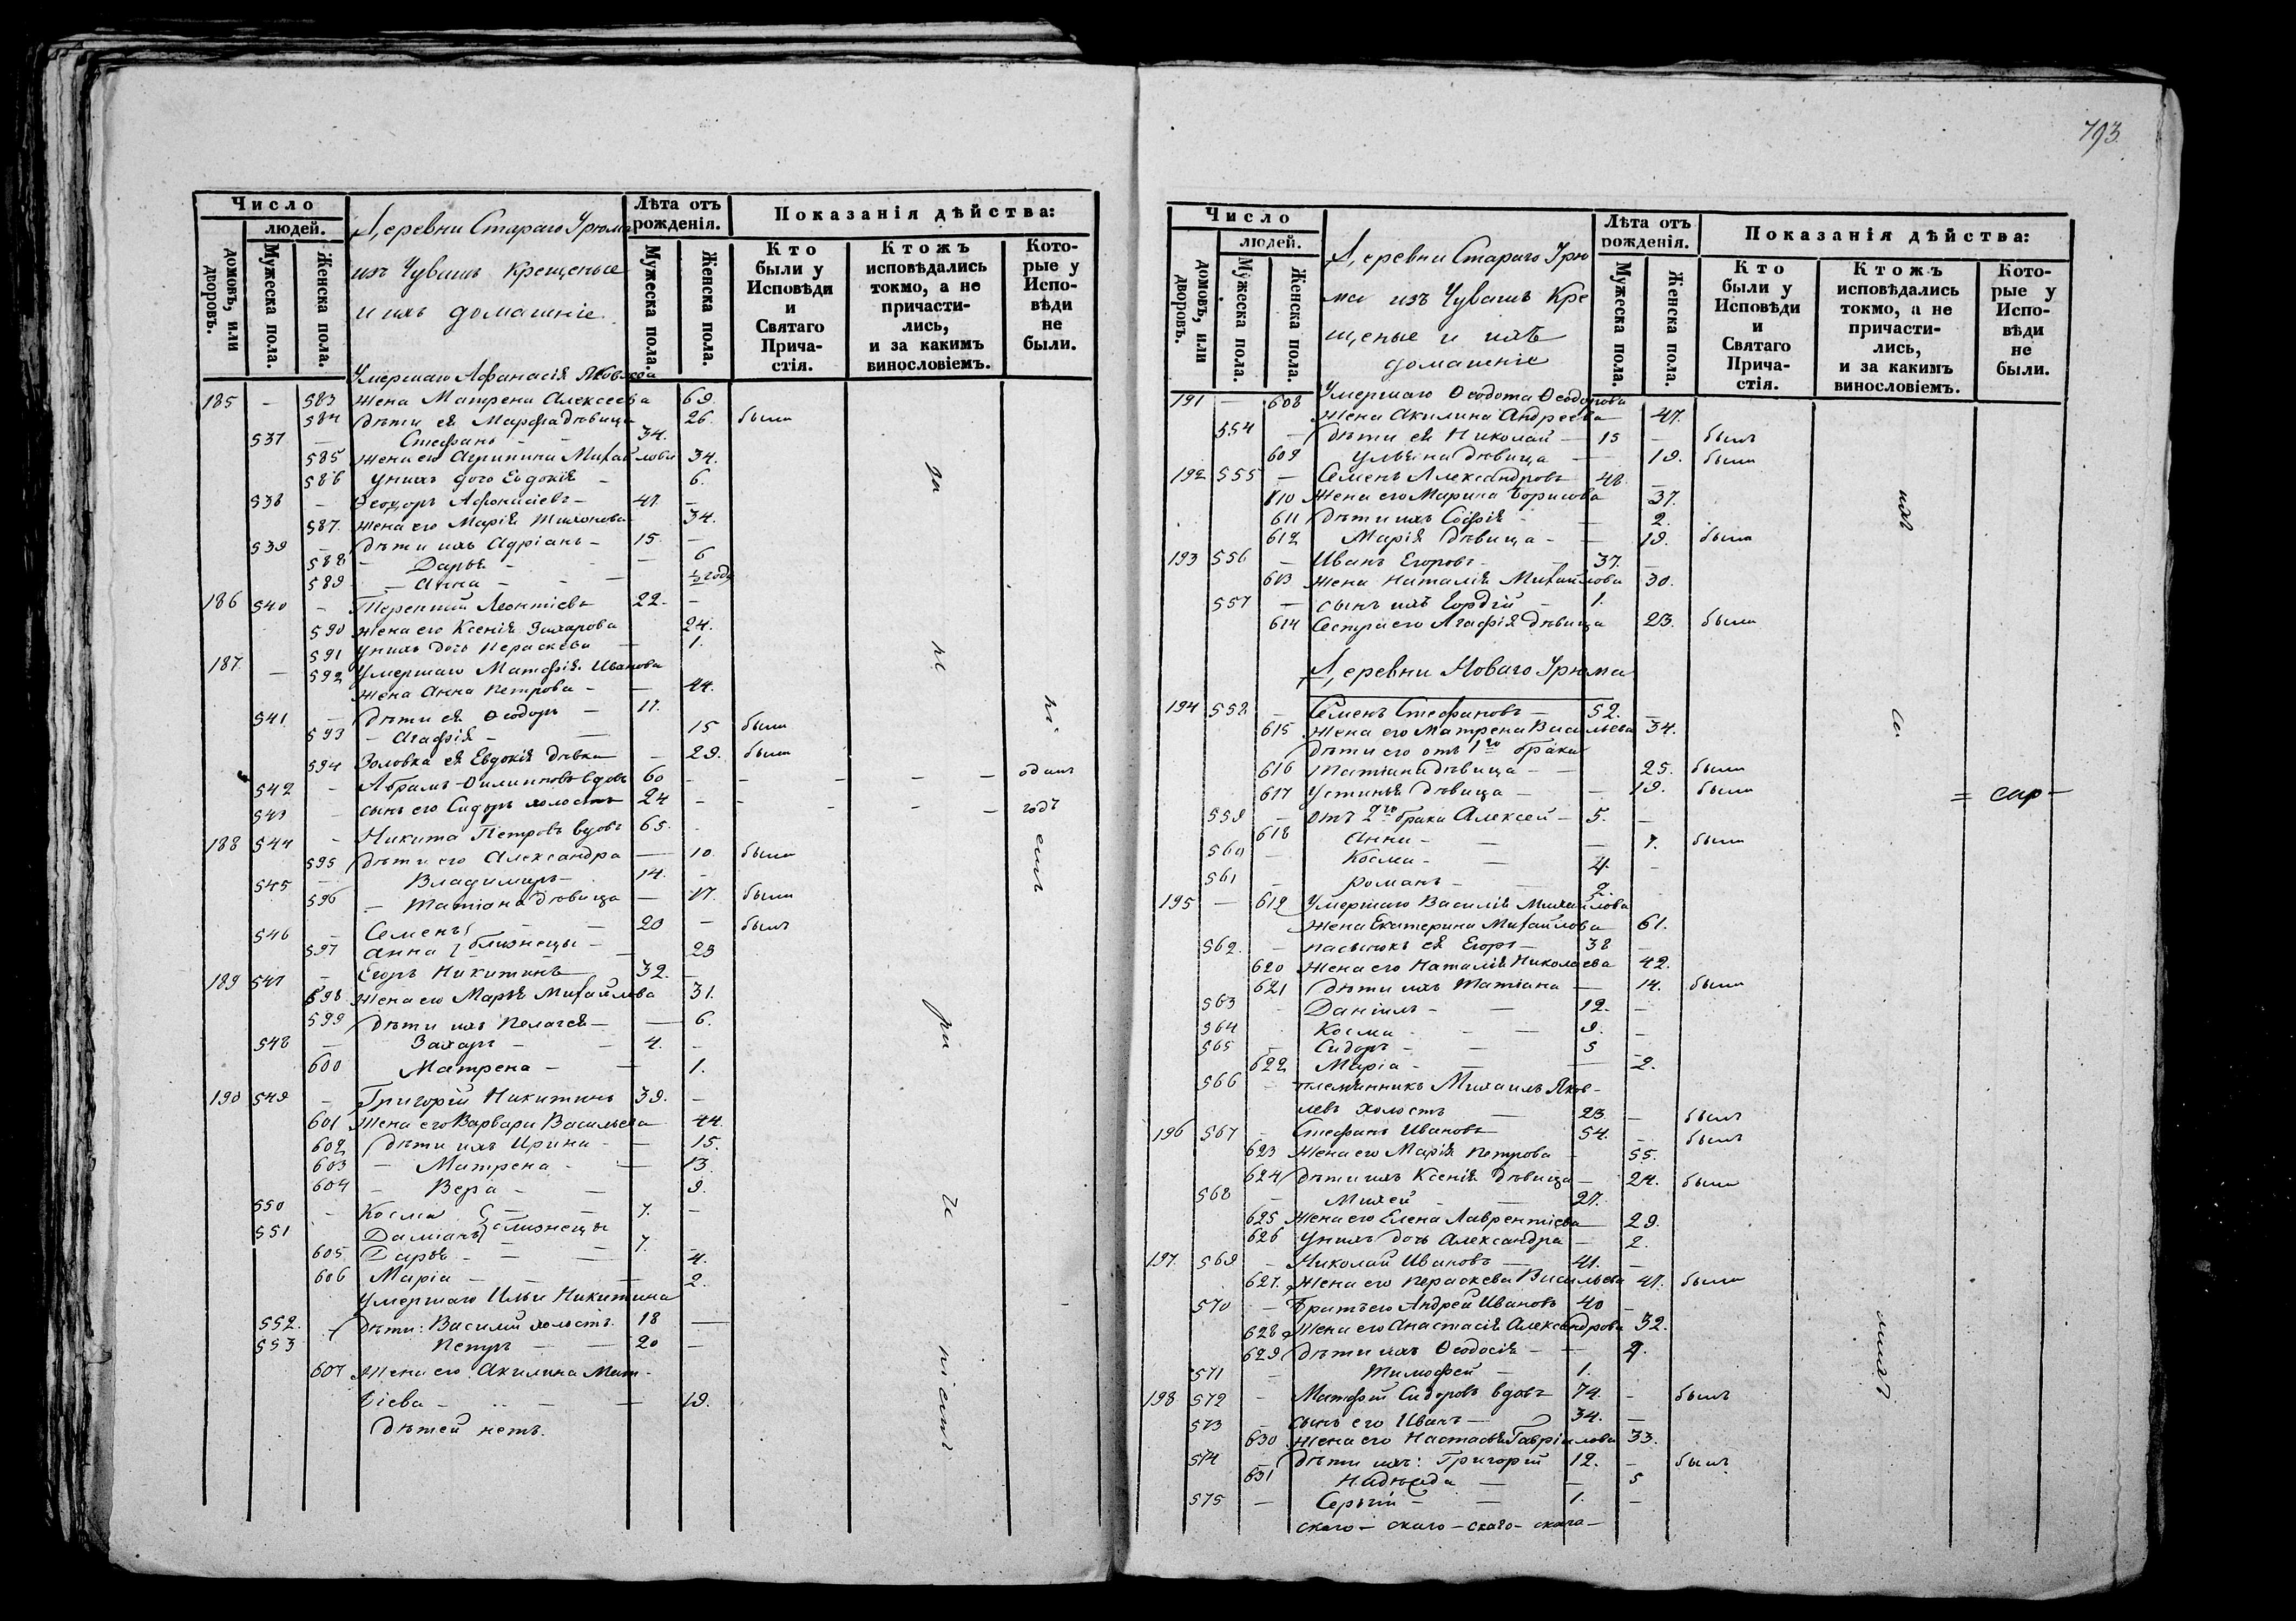 793.
Число
людей.
домовъ, или дворовъ.
Мужеска пола.
Женска пола.
Деревни Стараго Урюма
изъ Чувашъ крещеные
и ихъ домашніе.
Лѣта отъ рожденія.
Мужеска пола.
Женска пола.
Показанія дѣйства:
Кто были у Исповѣди и Святаго Прича-стія.
Ктожъ исповѣдались токмо, а не причасти-лись, и за какимъ винословіемъ.
Кото-рые у Испо-вѣди не были.
Умершаго Афанасія Яковлева
185 — 583 жена Матрена Алексеева 69.
584 дѣти ея Марфа дѣвица 26. была
537 — Стефанъ — 34.
585 жена его Агрипина Михайлова 34.
586 у нихъ дочь Евдокія — 6.
538 — Ѳеодоръ Афанасіевъ — 41. —
587. жена его Марія Тихонова 34.
539 — дѣти ихъ Адріанъ — 15. —
588 — Дарья — 6
589 — Анна — — ½ года
186 540 — Терентій Леонтіевъ 22. —
590 жена его Ксенія Захарова 24.
591 у нихъ дочь Параскева — 1.
187. — 592 Умершаго Матфія Иванова
жена Анна Петрова — — 44.
541 — дѣти ея Ѳеодоръ — 11.
593 — Агафія — 15 была
594 Золовка ея Евдокія дѣвка — 29. была
542 — Абрамъ Филиповъ вдовъ 60 — — — — — одинъ
543 — сынъ его Сидоръ холостъ 24 — — — — — годъ
188 544 — Никита Петровъ вдовъ 65. —
595 дѣти его Александра — 10. была
545 — Владимиръ — 14. —
596 — Татіана дѣвица — 17. была
546 — Семенъ — 20 — былъ
597 Анна } близнецы — 23
189 547 — Егоръ Никитинъ 32. —
598 жена его Марья Михайлова 31.
599 дѣти ихъ Пелагея — — 6.
548 — Захаръ — — 4. —
600 Матрена — — 1.
190 549 — Григорій Никитинъ 39. —
601 жена его Варвара Васильева 44.
602 дѣти ихъ Ирина — — 15.
603 — Матрена — — 13.
604 — Вера — — 9.
550 — Косма — 7. —
551 Даміанъ } близнецы 7. —
605. Дарья — — — 4.
606 Марія — — — 2.
Умершаго Ильи Никитина
552. — дѣти: Василій холостъ 18 —
553 Петръ — — 20 —
607 жена его Акилина Мат-
ѵіева — — 19.
дѣтей нетъ.
Число
людей.
домовъ, или дворовъ.
Мужеска пола.
Женска пола.
Деревни Стараго Урю
ма изъ Чувашъ Кре
щеные и ихъ
домашніе
Лѣта отъ рожденія.
Мужеска пола.
Женска пола.
Показанія дѣйства:
Кто были у Исповѣди и Святаго Прича-стія.
Ктожъ исповѣдались токмо, а не причасти-лись, и за какимъ винословіемъ.
Кото-рые у Испо-вѣди не были.
191 — 608 Умершаго Ѳеодота Ѳеодорова
жена Акилина Андреева 47.
554 — дѣти ея Николай — 15 — былъ
609 Ульяна дѣвица — 19. была
192 555 — Семенъ Александровъ 48 —
610 жена его Марина Борисова 37.
611 дѣти ихъ Софія — — 2.
612 Марія дѣвица — — 19. была
193 556 — Иванъ Егоровъ — 37. —
613 жена Наталія Михайлова 30.
557 — сынъ ихъ Гордій — 1.
614 Сестра его Агафія дѣвица 23. была
Деревни Новаго Урюма
194 558 — Семенъ Стефановъ — 52. —
615 жена его Матрена Васильева 34.
дѣти его отъ 1го брака
616 Татіана дѣвица — — 25. была
617 Устинья дѣвица — — 19. была
559 — отъ 2го брака Алексей — 5. —
618 Анна — — — 7. была
560 — Косма — — 4. —
561 — Романъ — 2. —
195 — 619 Умершаго Василія Михайлова
жена Екатерина Михайлова 61.
562. — пасынокъ ея Егоръ — 38 —
620 жена его Наталія Николаева 42.
621 дѣти ихъ Татіана — 14. была
563 — Даніилъ — — 12. —
564 Косма — — 9. —
565 — Сидоръ — — 5 —
622 Марія — — — 2.
566 — племянникъ Михаилъ Яков-
левъ холостъ — 23 — былъ
196 567 — Стефанъ Ивановъ — 54. — былъ
623 жена его Марія Петрова — 55.
624 дѣти ихъ Ксенія дѣвица — 24. была
568 — Михей — — 27.
625 жена его Елена Лаврентіева 29.
626 у нихъ дочь Александра — 2.
197. 569 — Николай Ивановъ — 41. —
627. жена его Параскева Васильева 41. была
570 — Братъ его Андрей Ивановъ 40 —
628 жена его Анастасія Александрова 32.
629 дѣти ихъ Ѳеодосія — — 4.
571 — Тимофей — 1.
198 572 — Матфій Сидоровъ вдовъ 74. — былъ
573 — сынъ его Иванъ — 34. —
630 жена его Настасья Гавріилова 33.
574 — дѣти ихъ: Григорій 12. — былъ
631 Надежда — — 5
575 — Сергій — — 1. —
скаго — скаго — скаго — скаго —